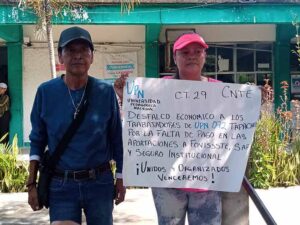 UPN
UNIVERSIDAD
PEDAGÓGICA
NACIONAL
CT. 29 CNTE
DESFALCO ECONOMICO A LOS
TRABAJADORES DE UPN 072 TAPACHULA
POR LA FALTA DE PAGO EN LAS
APORTACIONES A FOVISSSTE, SAR
Y SEGURO INSTITUCIONAL
¡UNIDOS Y ORGANIZADOS
VENCEREMOS!